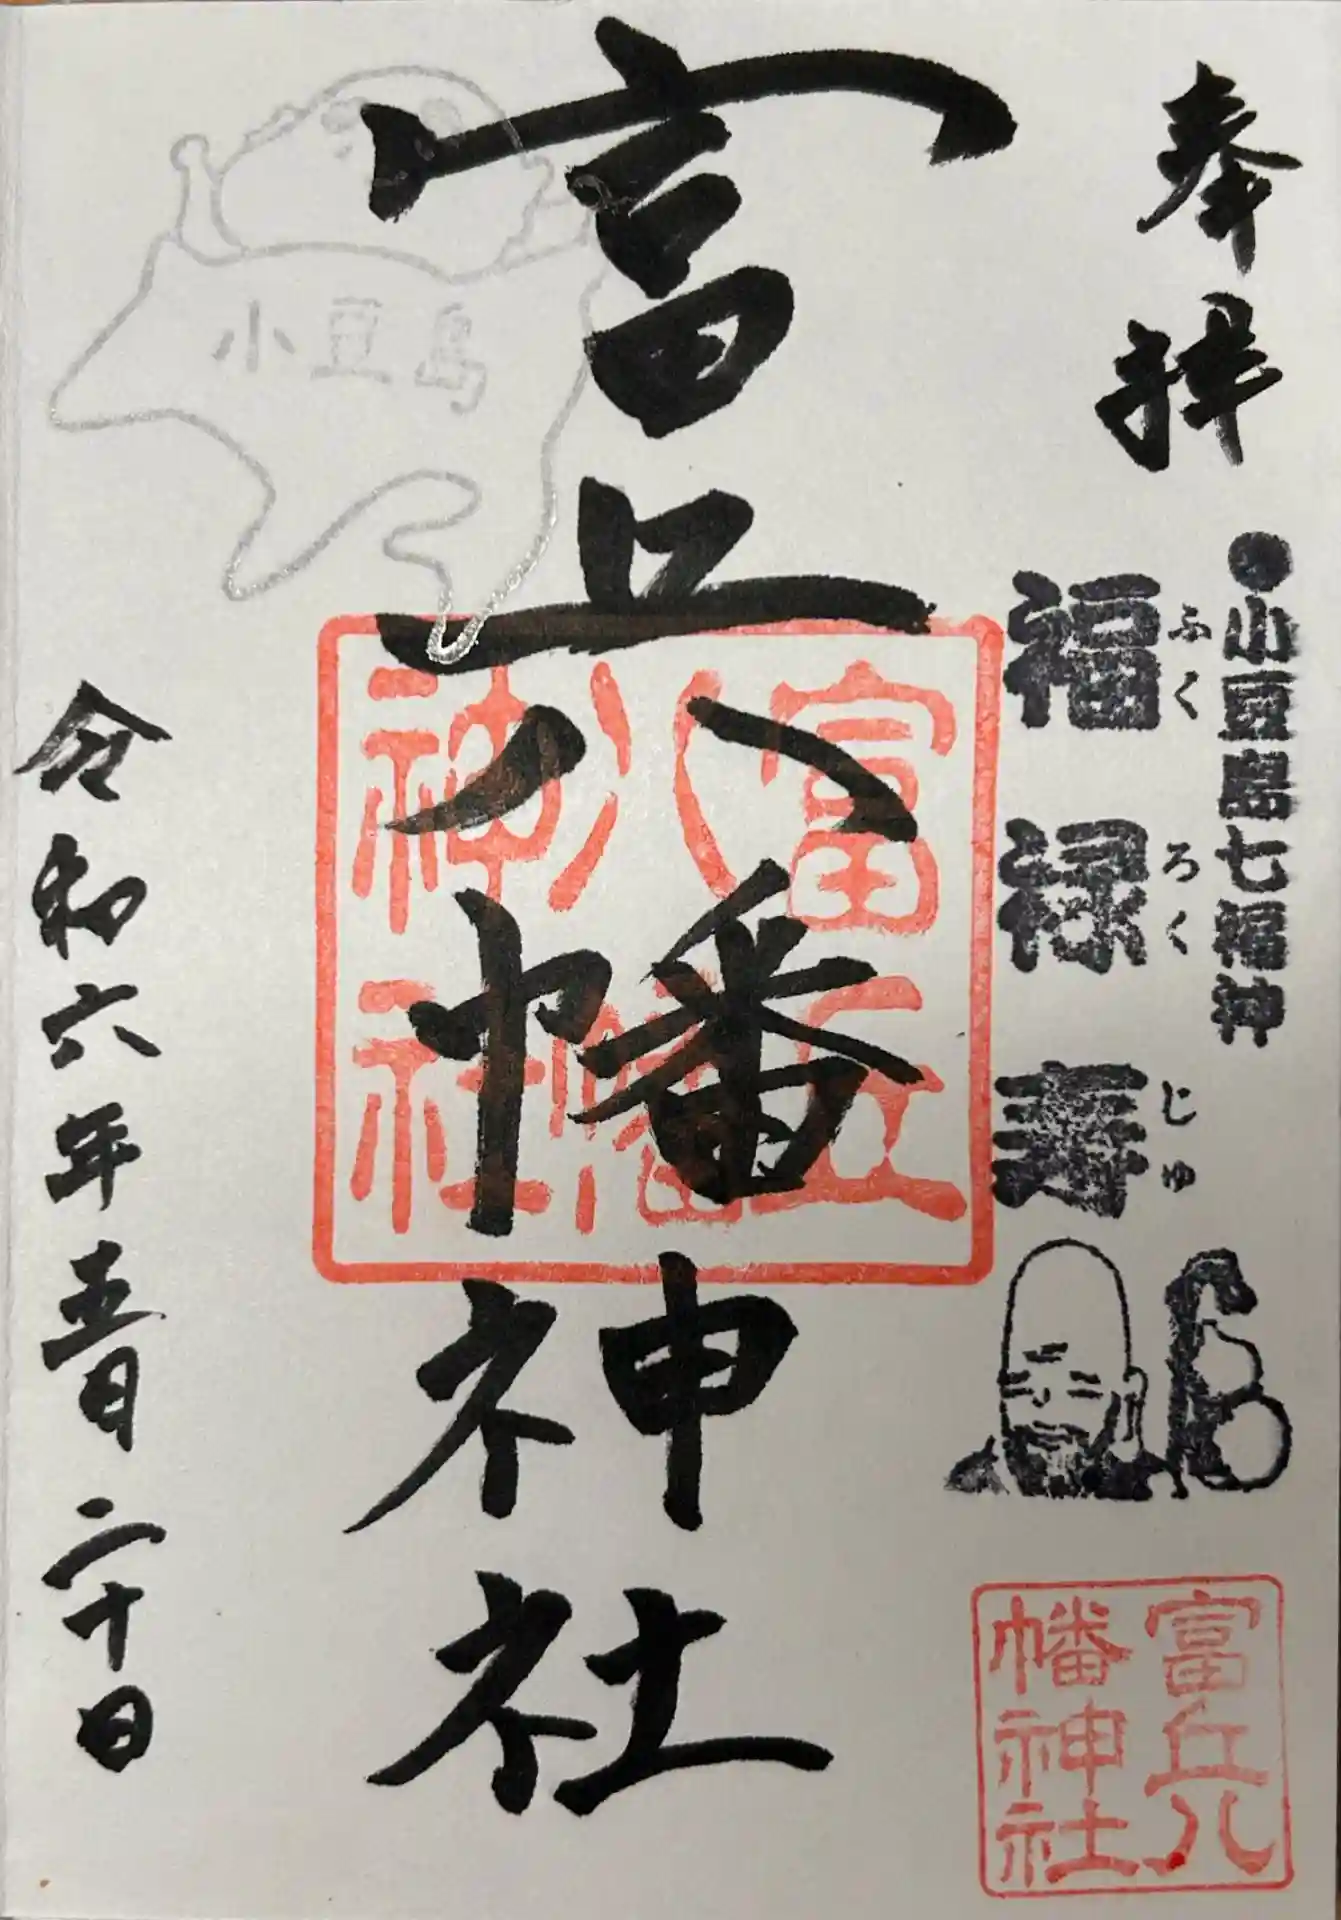 奉拝
●小豆島七福神
福禄寿
ふくろくじゅ
富丘八幡神社
富丘
八幡
神社
小豆島
令和六年五月二十日
富丘八
幡神社